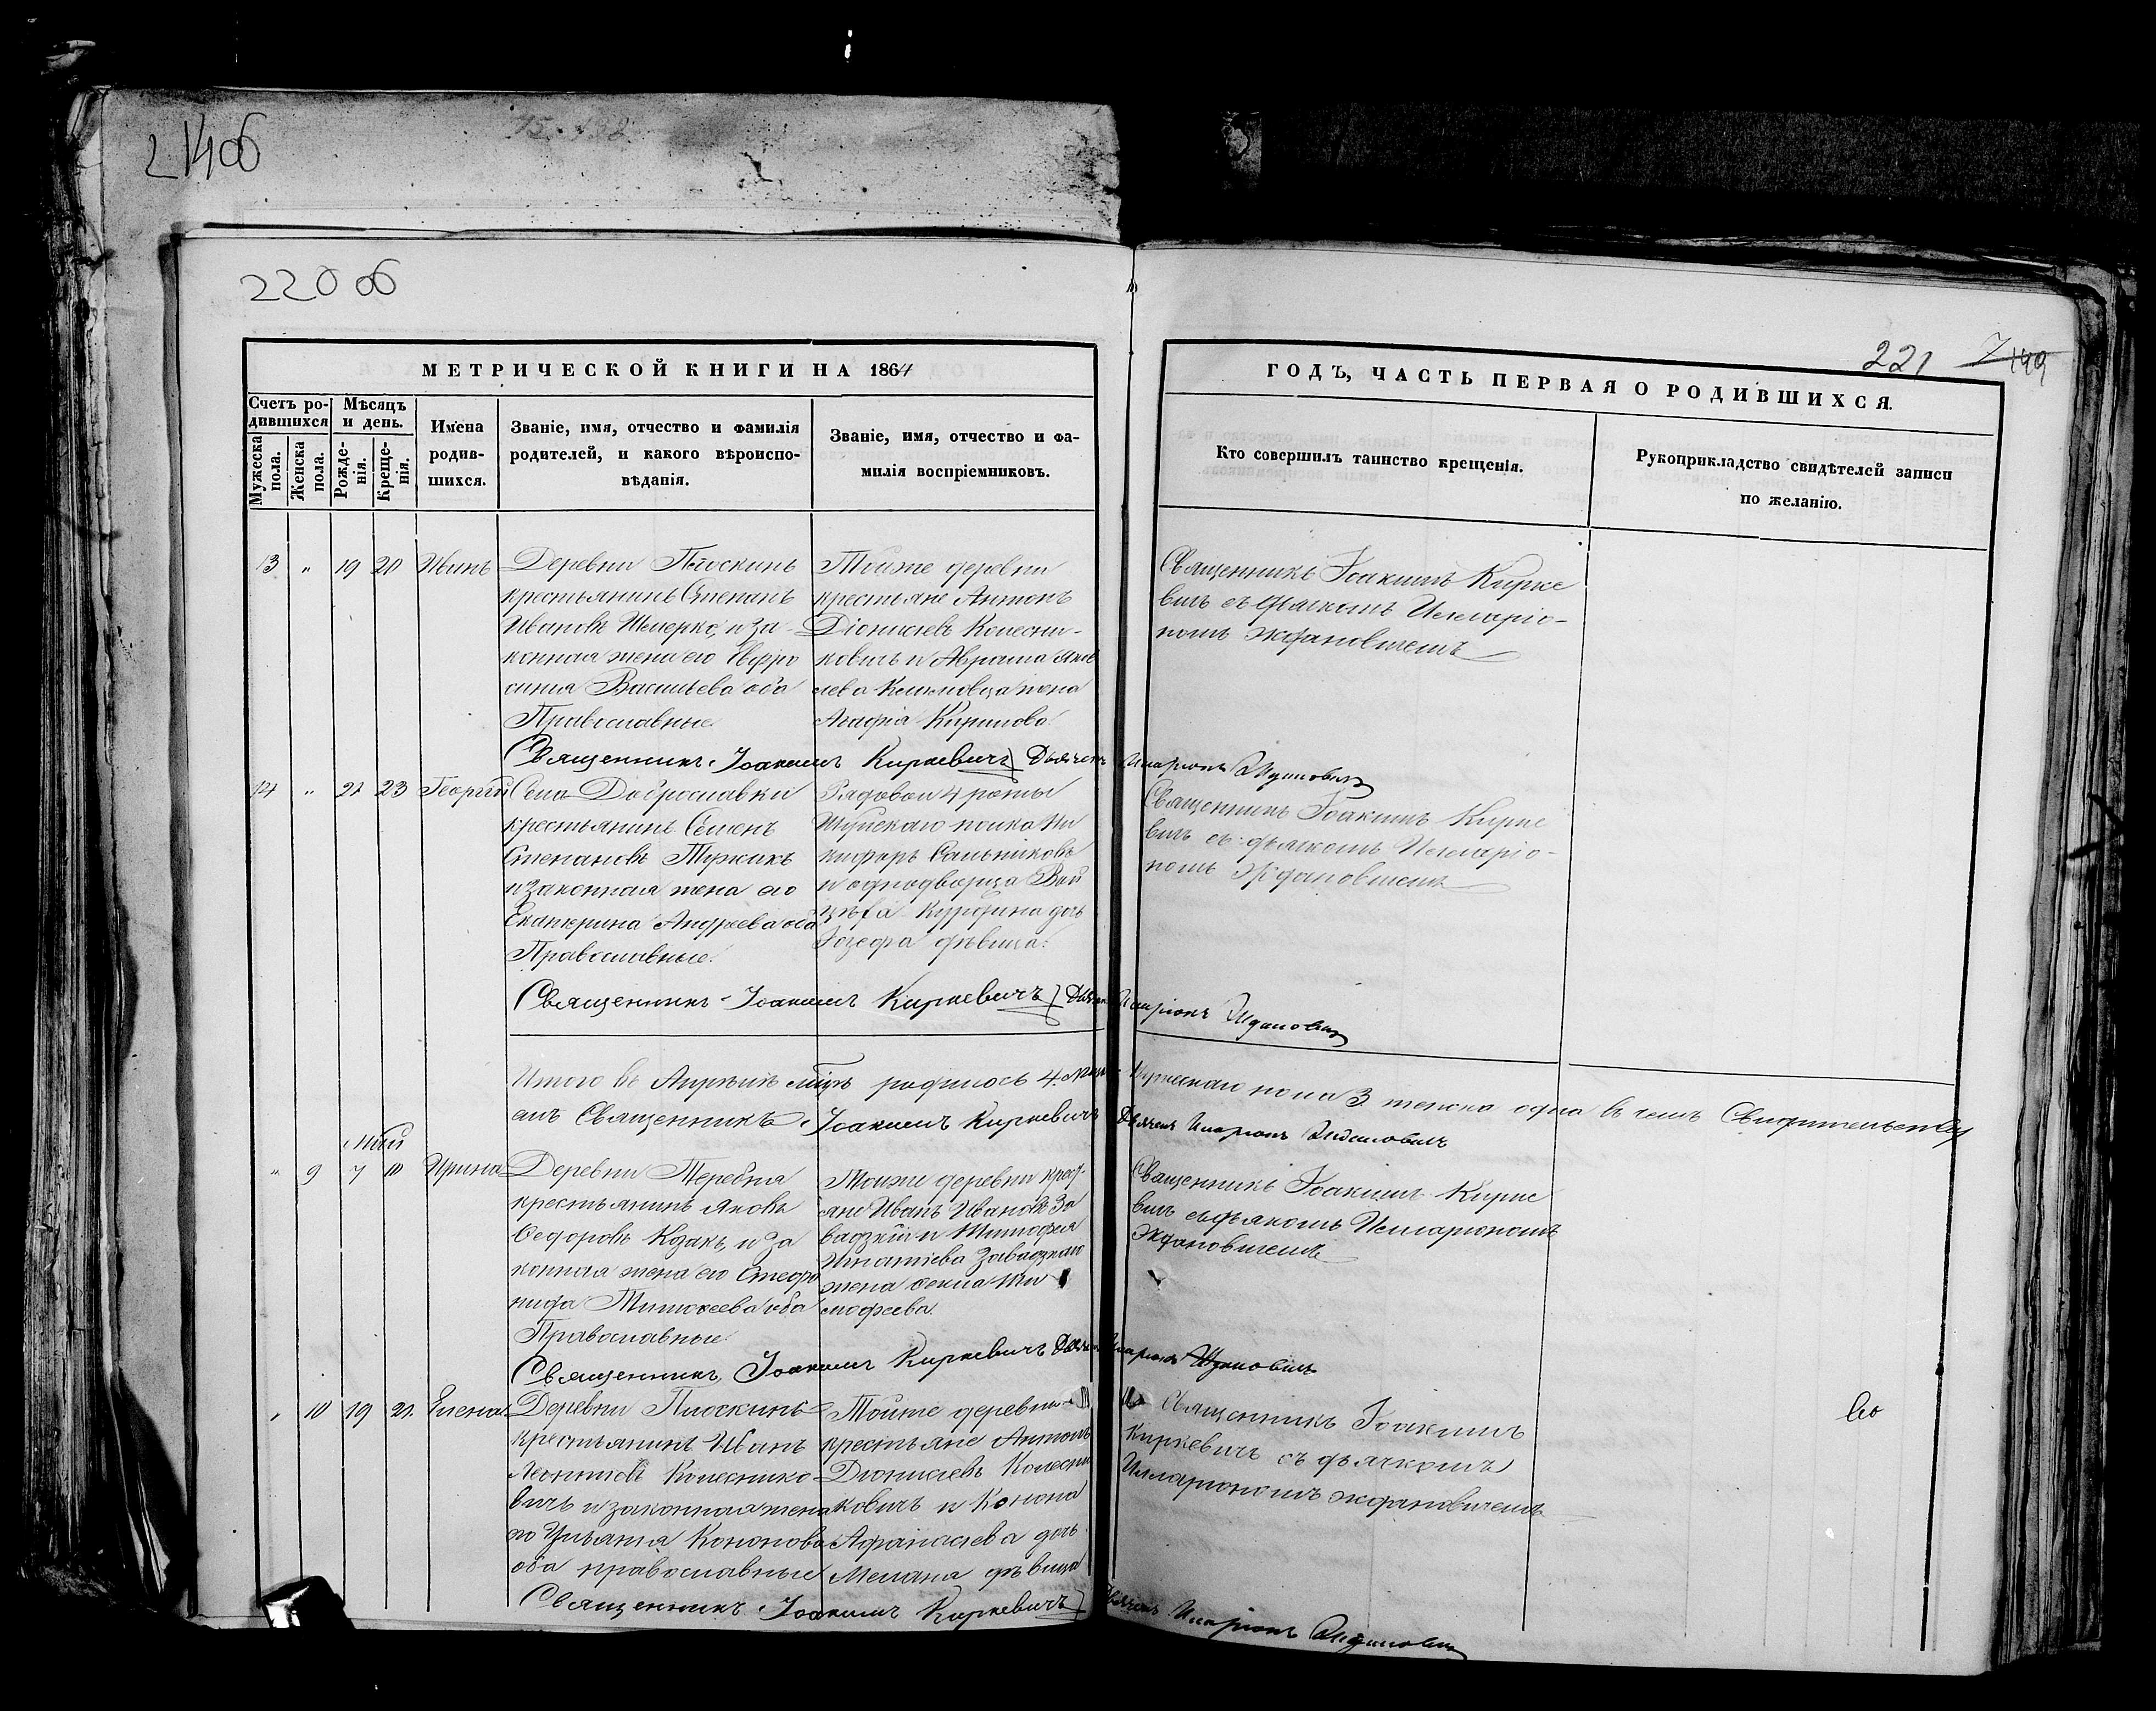 21406
220 об
МЕТРИЧЕСКОЙ КНИГИ НА 1864
Счетъ ро-
дившихся
Мужеска
пола.
Женска
пола.
Мѣсяцъ
и день.
Рожде-
нія.
Креще-
нія.
Имена
родив-
шихся.
Званіе, имя, отчество и фамилія
родителей, и какого вѣроиспо-
вѣданія.
Званіе, имя, отчество и фа-
милія воспріемниковъ.
221
ГОДЪ, ЧАСТЬ ПЕРВАЯ О РОДИВШИХСЯ.
Кто совершилъ таинство крещенія.
Рукоприкладство свидѣтелей записи
по желанію.
13 " 19 20 Иванъ
Деревни Плоскинь
крестьянинъ Степанъ
Ивановъ и за-
конная жена его Евфро
синія Васильева оба
Православные
Тойже деревни
крестьяне Антонъ
Діонисіевъ Колесни-
ковичъ и Абрама Яков
лева жена
Агафія Кирилова
Священникъ Іоакимъ Кирке
вичъ съ дьячкомъ Илларіо-
номъ Ждановичемъ
Священникъ Іоакимъ Киркевичъ Дьячекъ Иларіонъ Ждановичъ
14 " 23 Георгій
Села Доброславки
крестьянинъ Семенъ
Степановъ Тужикъ
и законная жена его
Екатерина Андреева оба
Православные
Рядовой 4 роты
Шуйскаго полка Ни
кифоръ Сальниковъ
и однодворца
дочь
Іозефа дѣвица
Священникъ Іоакимъ Кирке
вичъ съ дьячкомъ Илларіо-
номъ Ждановичемъ
Священникъ Іоакимъ Киркевичъ Дьячекъ Иларіонъ Ждановичъ
Итого въ Апрѣлѣ мцѣ родилось 4. мужескаго пола 3 женска одна въ чемъ
Священникъ Іоакимъ Киркевичъ Дьячекъ Иларіонъ Ждановичъ
Май
" 9 7 10 Ирина
Деревни Теребня
крестьянинъ Яковъ
Ѳедоровъ Козакъ и за
конная жена его Стефа
нида Тимоѳеева оба
Православные
Тойже деревни крест-
яне Иванъ Ивановъ За
вадзкій и Тимофея
Игнатіева Завадзкаго
жена Ѳекла Ти
мофеева
Священникъ Іоакимъ Кирке
вичъ съ дьякомъ Илларіономъ
Ждановичемъ
Священникъ Іоакимъ Киркевичъ Дьячекъ Иларіонъ Ждановичъ
" 10 19 21. Елена
Деревни Плоскинь
крестьянинъ Иванъ
Леонтіевъ Колеснико-
вичъ и законная жена
его Ульяна Кононова
оба православные
Тойже деревни
крестьяне Антонъ
Діонисіевъ Колесни
ковичъ и Конона
Афанасіева дочь
Мелана дѣвица
Священникъ Іоакимъ
Киркевичъ съ дьячкомъ
Илларіономъ Ждановичемъ
Священникъ Іоакимъ Киркевичъ Дьячекъ Иларіонъ Ждановичъ